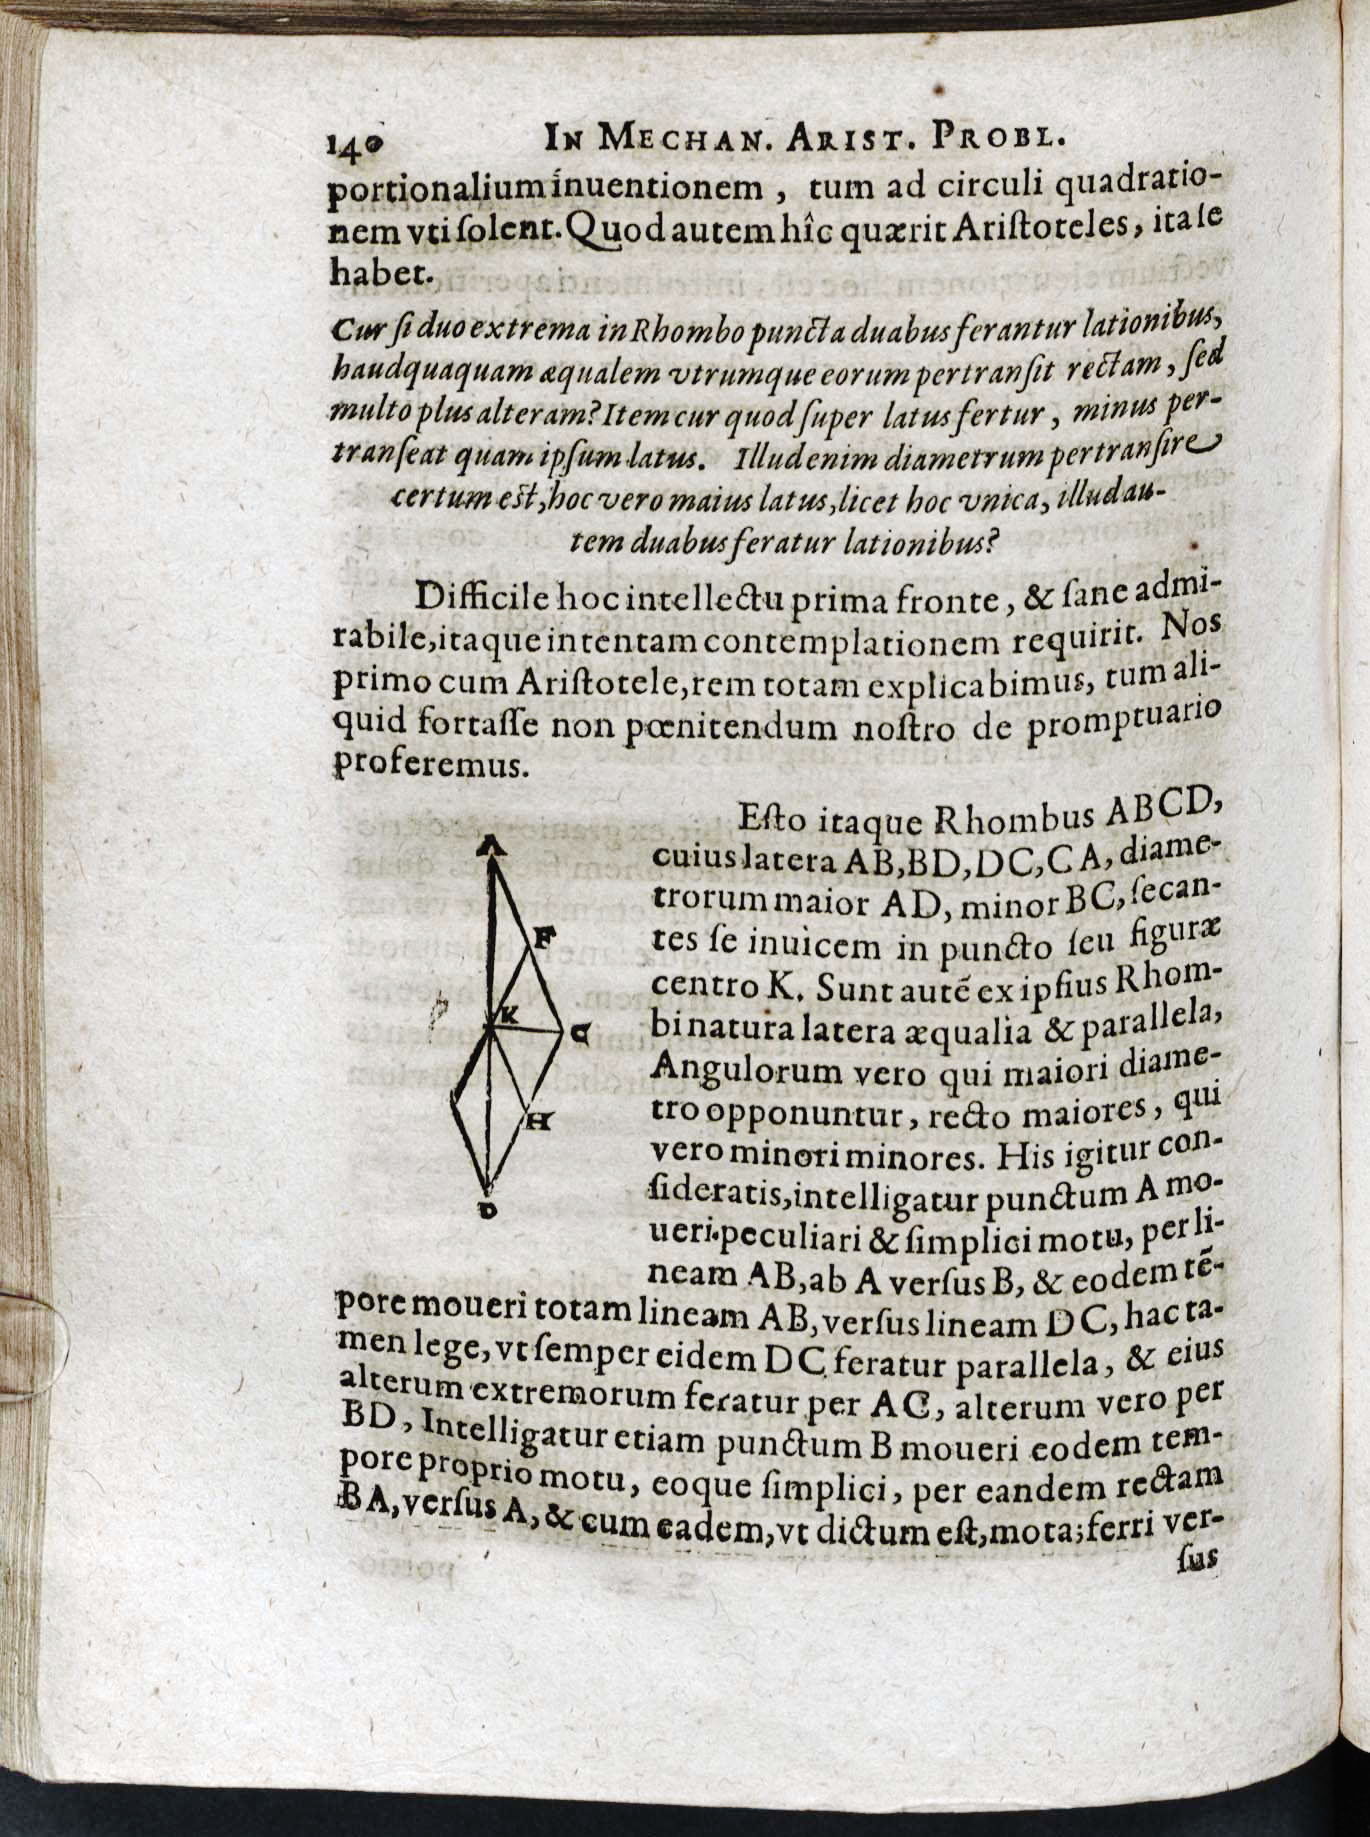 140 IN MECHAN. ARIST. PROBL.
portionalium inuentionem, tum ad circuli quadratio-
nem vti ſolent. Quod autem hîc quærit Ariſtoteles, ita ſe
habet.
Cur ſi duo extrema in Rhombo puncta duabus ferantur lationibus,
haudquaquam æqualem vtrumque eorum pertranſit rectam, ſed
multo plus alteram? Item cur quod ſuper latus fertur, minus per-
tranſeat quam ipſum latus. Illud enim diametrum pertranſire
certum eſt, hoc vero maius latus, licet hoc vnica, illud au-
tem duabus feratur lationibus?
Difficile hoc intellectu prima fronte, & ſane admi-
rabile, itaque intentam contemplationem requirit. Nos
primo cum Ariſtotele, rem totam explicabimus, tum ali-
quid fortaſſe non pœnitendum noſtro de promptuario
proferemus.
Eſto itaque Rhombus ABCD,
cuius latera AB, BD, DC, CA, diame-
trorum maior AD, minor BC, ſecan-
tes ſe inuicem in puncto ſeu figuræ
centro K. Sunt autẽ ex ipſius Rhom-
bi natura latera æqualia & parallela,
Angulorum vero qui maiori diame-
tro opponuntur, recto maiores, qui
vero minori minores. His igitur con-
ſideratis, intelligatur punctum A mo-
ueri peculiari & ſimplici motu, per li-
neam AB, ab A verſus B, & eodem tẽ-
pore moueri totam lineam AB, verſus lineam DC, hac ta-
men lege, vt ſemper eidem DC feratur parallela, & eius
alterum extremorum feratur per AC, alterum vero per
BD, Intelligatur etiam punctum B moueri eodem tem-
pore proprio motu, eoque ſimplici, per eandem rectam
BA, verſus A, & cum eadem, vt dictum eſt, mota; ferri ver-
ſus
A
F
K
C
H
D